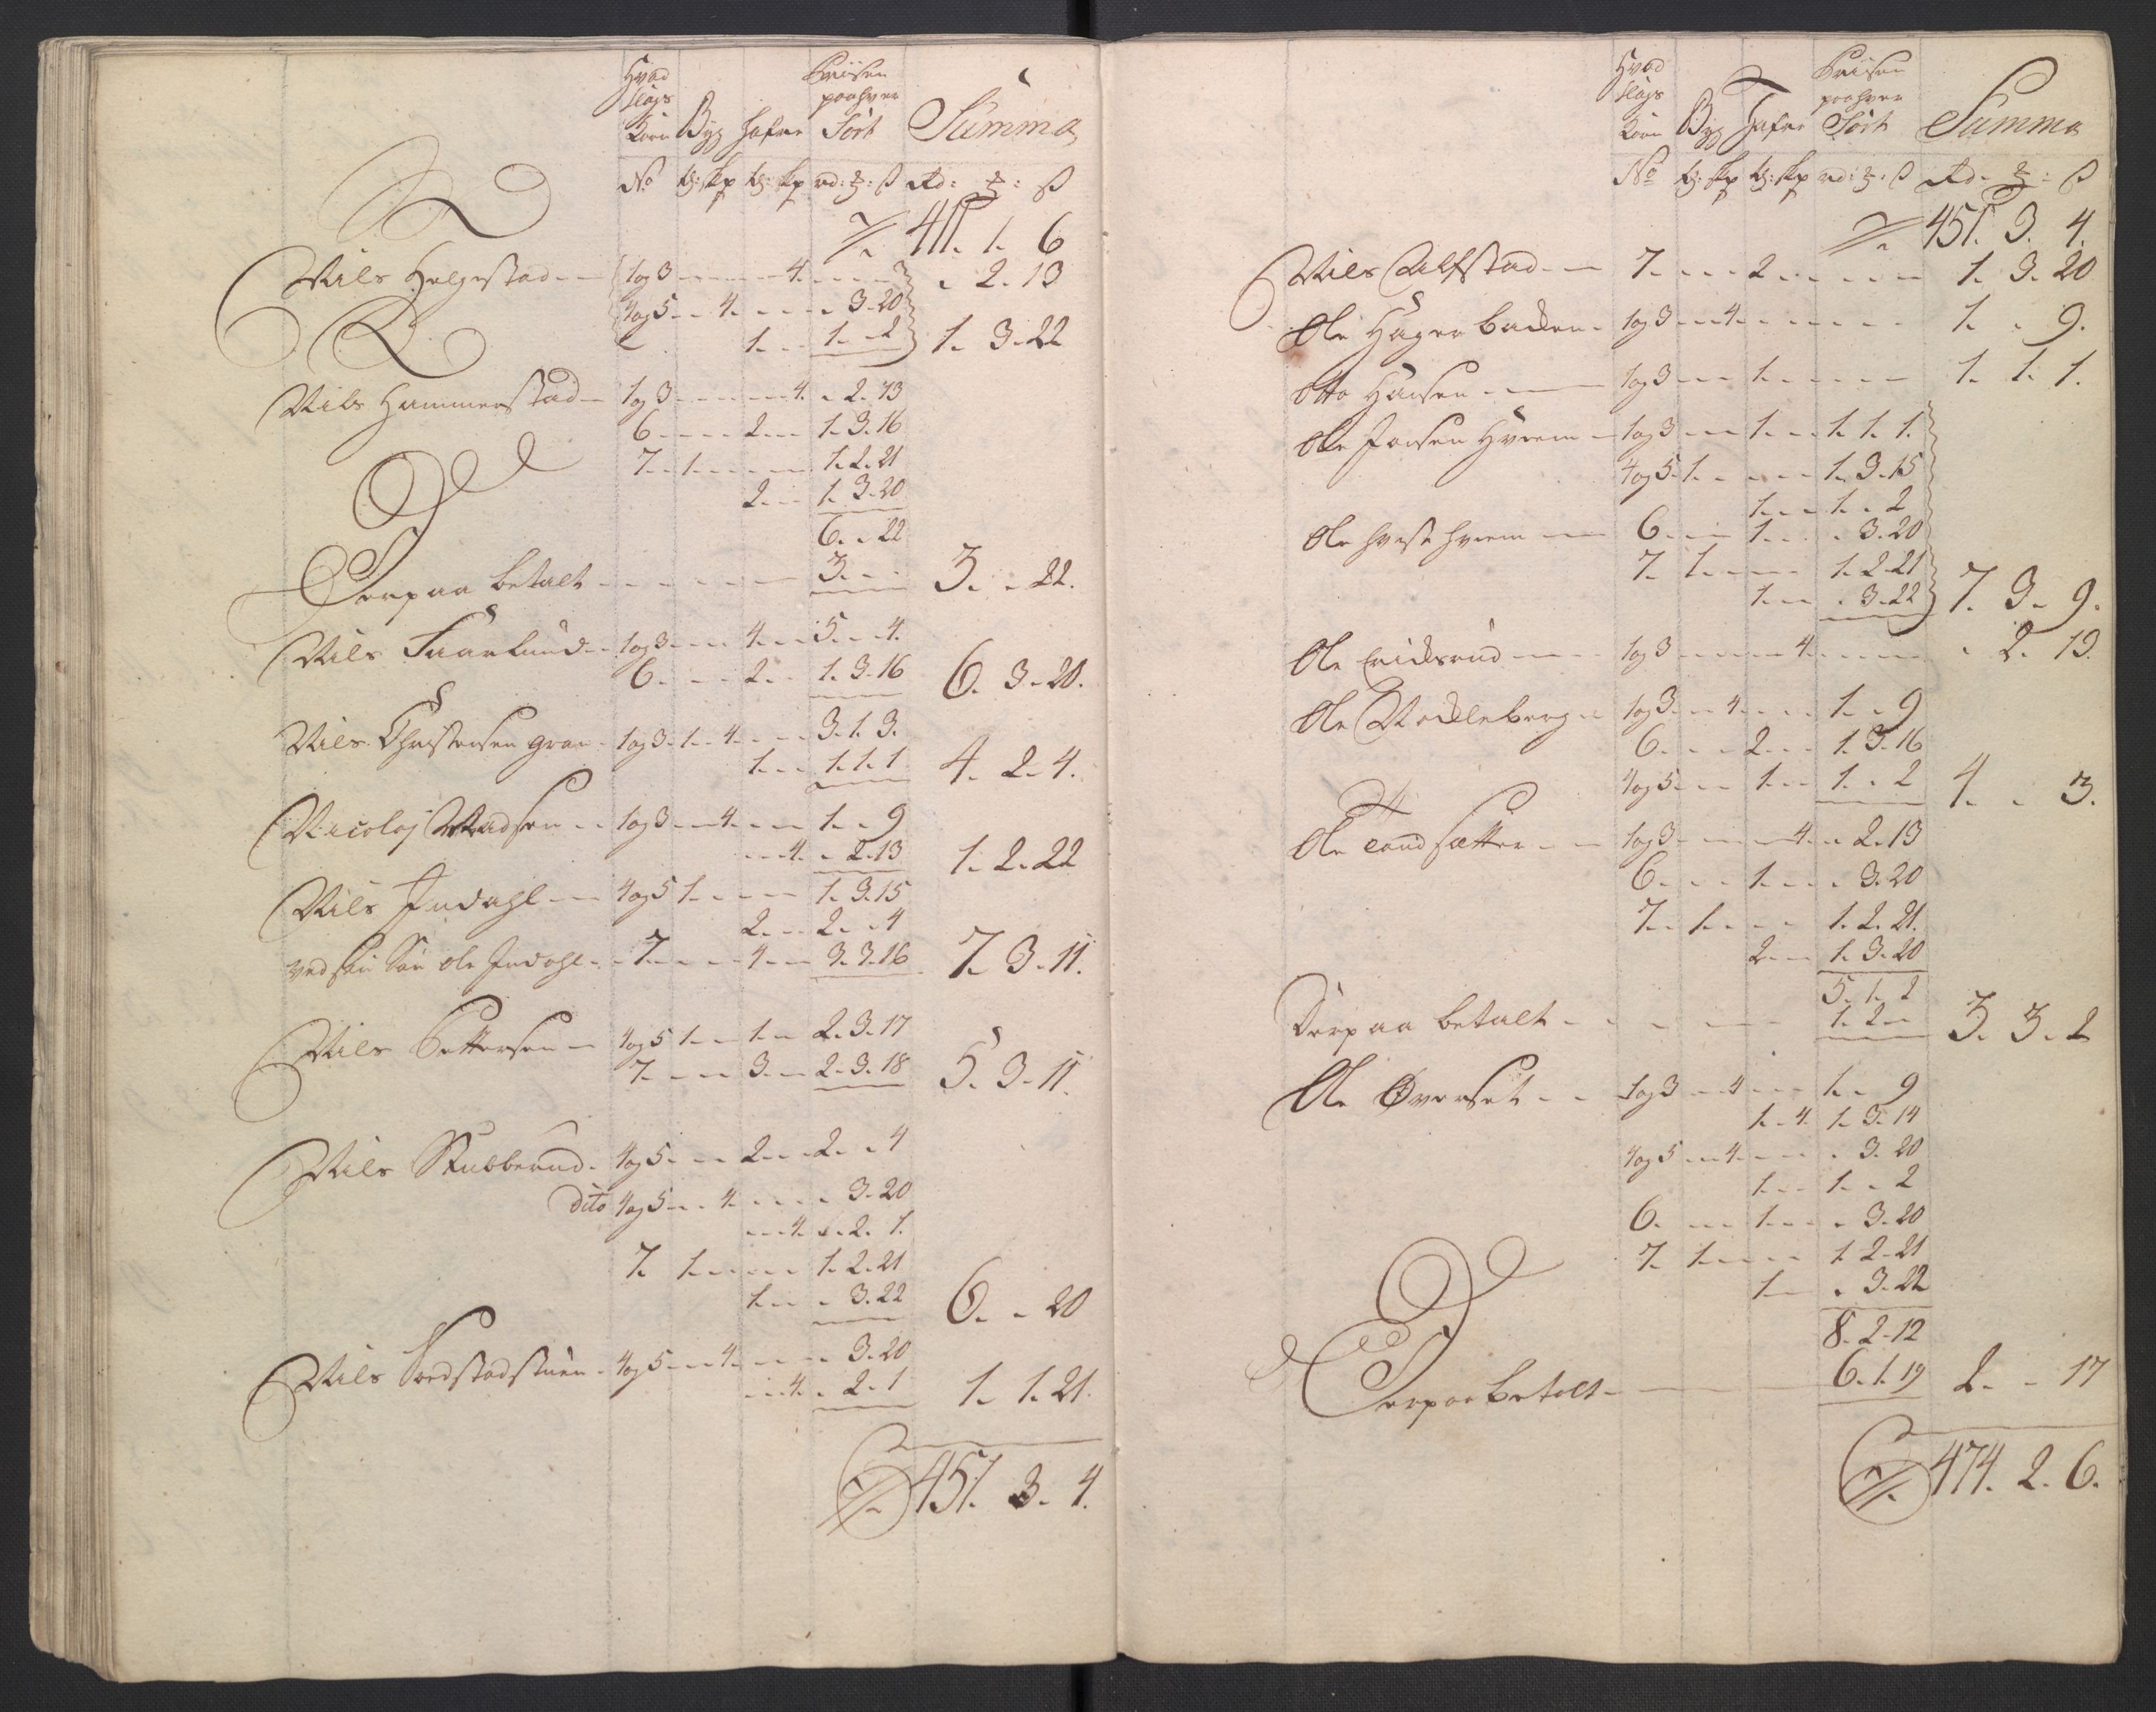 Hvad Slags Korn Byg Hafre Prisen paa hver Sort Summa
No td: skp td: skp rd: : ß Rd: : ß
411. 1. 6
Nils Helgestad 1 og 3 4. . 2. 13
4 og 5 4. . 3. 20
1. 1. . 2 1. 3. 22
Nils Hammerstad 1 og 3 4. . 2. 13
6 2 1. 3. 16
7. 1. 1. 2. 21
2. 1. 3. 20
6. . 22
Derpaa betalt 3. . 3. . 22.
Nils Faarlund 1 og 3 4. 5. . 4.
6. 2. 1. 3. 16 6. 3. 20.
Nils Christensen Gran 1 og 3. 1. 4. 3. 1. 3.
1. 1. 1. 1 4. 2. 4.
Nicolaj Madsen 1 og 3 4. 1. . 9
4. . 2. 13 1. 2. 22
Nils Indahl 4 og 5 1. 1. 3. 15
2. 2. . 4
ved sin Søn Ole Indahl 7. 4. 3. 3. 16 7. 3. 11.
Nils Pettersen 4 og 5 1. 1. 2. 3. 17
7. 3. 2. 3. 18 5. 3. 11.
Nils Stubberud 4 og 5 2. 2. . 4
dito 4 og 5 4. . 3. 20
4. . 2. 1.
7. 1. 1. 2. 21
1. . 3. 22 6. . 20
Nils 4 og 5 4. . 3. 20
4. . 2. 1 1. 1. 21.
451. 3. 4.
Hvad Slags Korn Byg Hafre Prisen paa hver Sort Summa
No td: skp td: skp rd: : ß Rd. : ß
451. 3. 4.
Nils Alfstad 7. 2 1. 3. 20
Ole Hagerbacken 1 og 3 4. 1. . 9.
Otto Hansen 1 og 3 1. 1. 1. 1.
Ole Joensen Hveem 1 og 3 1. 1. 1. 1.
4 og 5. 1. 1. 3. 15
1. 1. . 2
Ole hveem 6. 1. . 3. 20
7. 1. 1. 2. 21
1. . 3. 22 7. 3. 9.
Ole Ericksrud 1 og 3 4. . 2. 13.
Ole Nøckleberg 1 og 3. 4. 1. . 9
6. 2. 1. 3. 16
4 og 5. 1. 1. . 2 4. . 3.
Ole sætter 1 og 3 4. . 2. 13
6. 1. . 3. 20
7. 1. 1. 2. 21.
2. 1. 3. 20
5. 1. 2
Derpaa betalt 1. 2. 3. 3. 2
Ole Øverset 1 og 3 4 1. . 9
1. 4. 1. 3. 14
4 og 5 4. . 3. 20
1. 1. . 2
6. 1. . 3. 20
7. 1. 1. 2. 21
1. . 3. 22
8. 2. 12
Derpaa betalt 6. 1. 19 2. . 17
474. 2. 6.